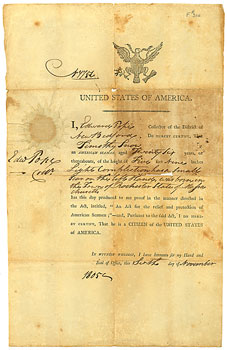 UNITED STATES OF AMERICA.
I, Edward Pope Collector of the District of
New Bedford DO HEREBY CERTIFY, That
Timothy
AN AMERICAN SEAMAN, aged Twenty Six years, or
thereabouts, of the height of Five feet Nine inches
Light Complexion has a Small
Scar on his left hand was born in
the Town of Rochester State of Massa
chusetts
has this day produced to me proof in the manner directed
in the Act, intitled, "An Act for the relief and protection of
American Seamen;"—and, Pursuant to the said Act, I DO HERE-
BY CERTIFY, That he is a CITIZEN of the UNITED STATES
OF AMERICA.
Edw Pope
Collr
IN WITNESS WHEREOF, I have hereunto set my Hand
and Seal of Office, this Sixth day of November